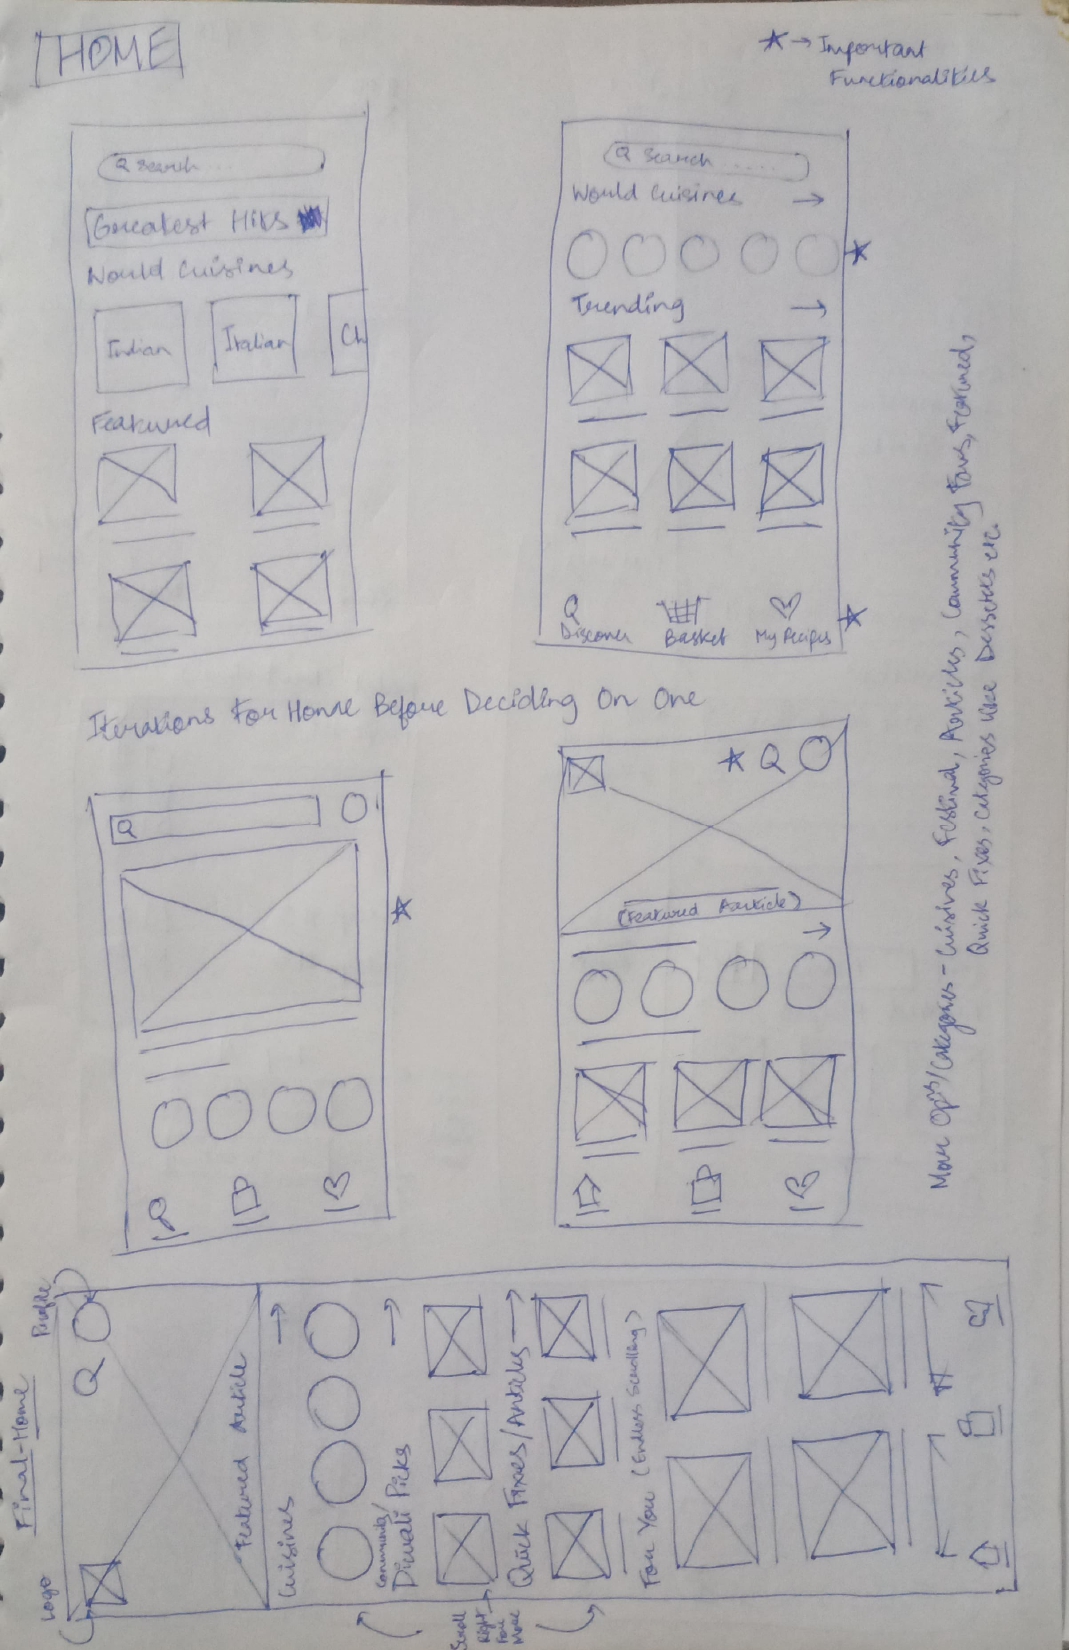 HOME
★ → Important
Functionalities
Search
Greatest Hits
World Cuisines
Indian
Italian
Ch
Featured
Search ....
World Cuisines →
Trending →
Discover
Basket
My Recipes
Iterations For Home Before Deciding On One
(Featured Article)
More Opns/Categories - Cuisines, Festival, Articles, Community Favs, Featured,
Quick Fixes, Categories like Desserts etc.
Final-Home
Logo
Profile
Featured Article
Cuisines →
Community/
Diwali Picks →
Scroll
Right
For
More
Quick Fixes/Articles →
For You (Endless Scrolling)